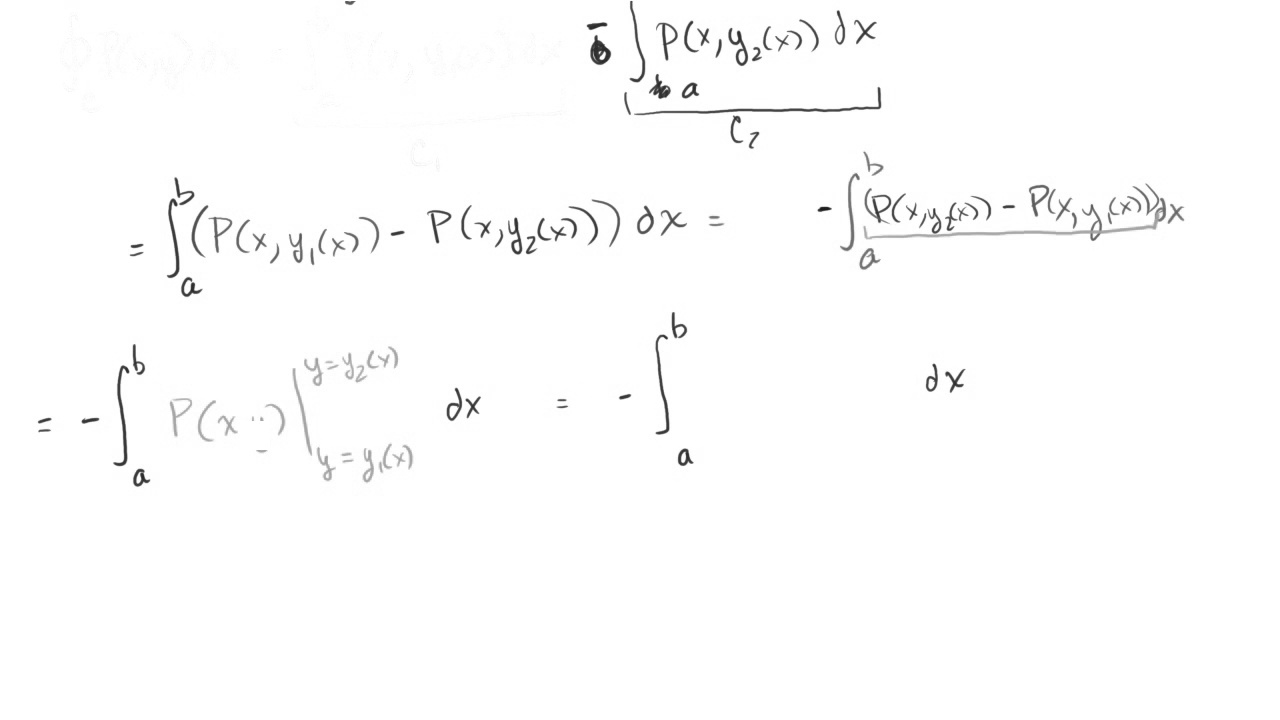 ∮_C P(x,y) dx = - ∫_a P(x, y₂(x)) dx
C₁ C₂
= ∫_a^b (P(x, y₁(x)) - P(x, y₂(x))) dx = - ∫_a^b (P(x, y₂(x)) - P(x, y₁(x))) dx
= - ∫_a^b P(x ..) |_{y = y₁(x)}^{y = y₂(x)} dx = - ∫_a^b dx